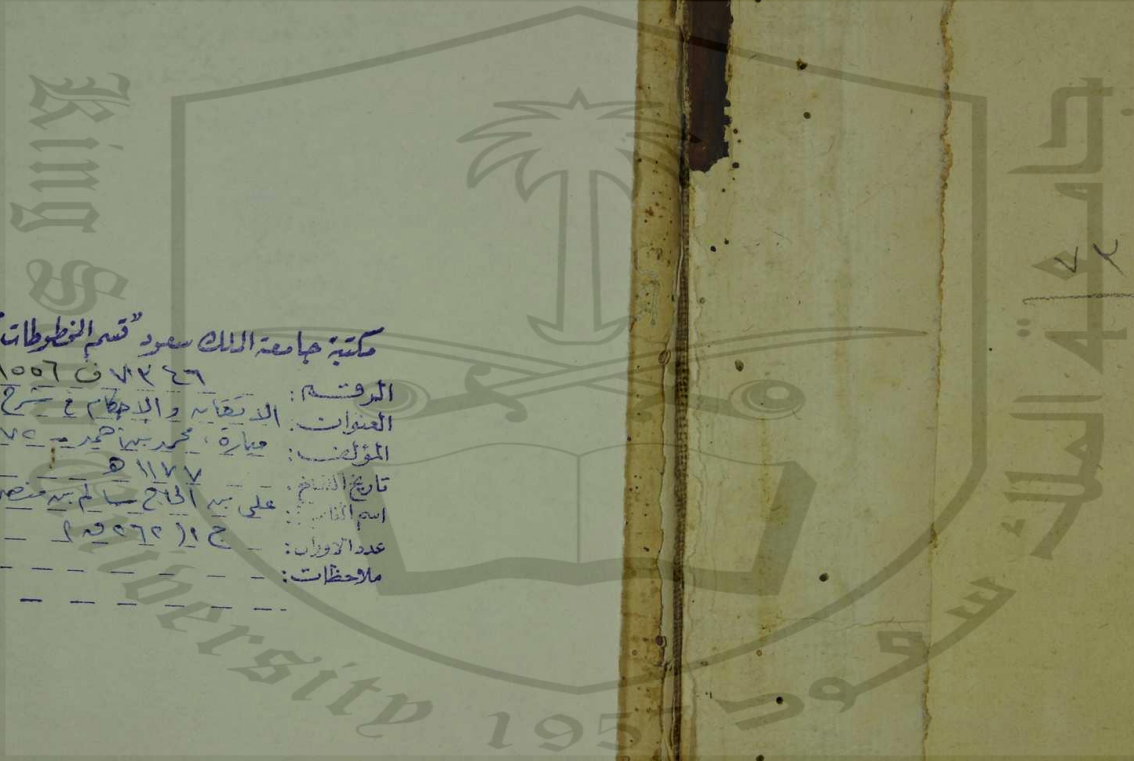 مكتبة جامعة الملك سعود "قسم المخطوطات"
الرقم: ٧٣٤٦ ف ١٥٥٦
العنوان: الاتقان والاحكام في شرح
المؤلف: ميارة، محمد بن أحمد - ٧٢
تاريخ النسخ: ١١٧٧ هـ
اسم الناسخ: علي بن الحاج سالم بن منصور
عدد الأوراق: ج ١ (٢٦٢ ق)
ملاحظات:
King Saud University
1957
جامعة الملك سعود